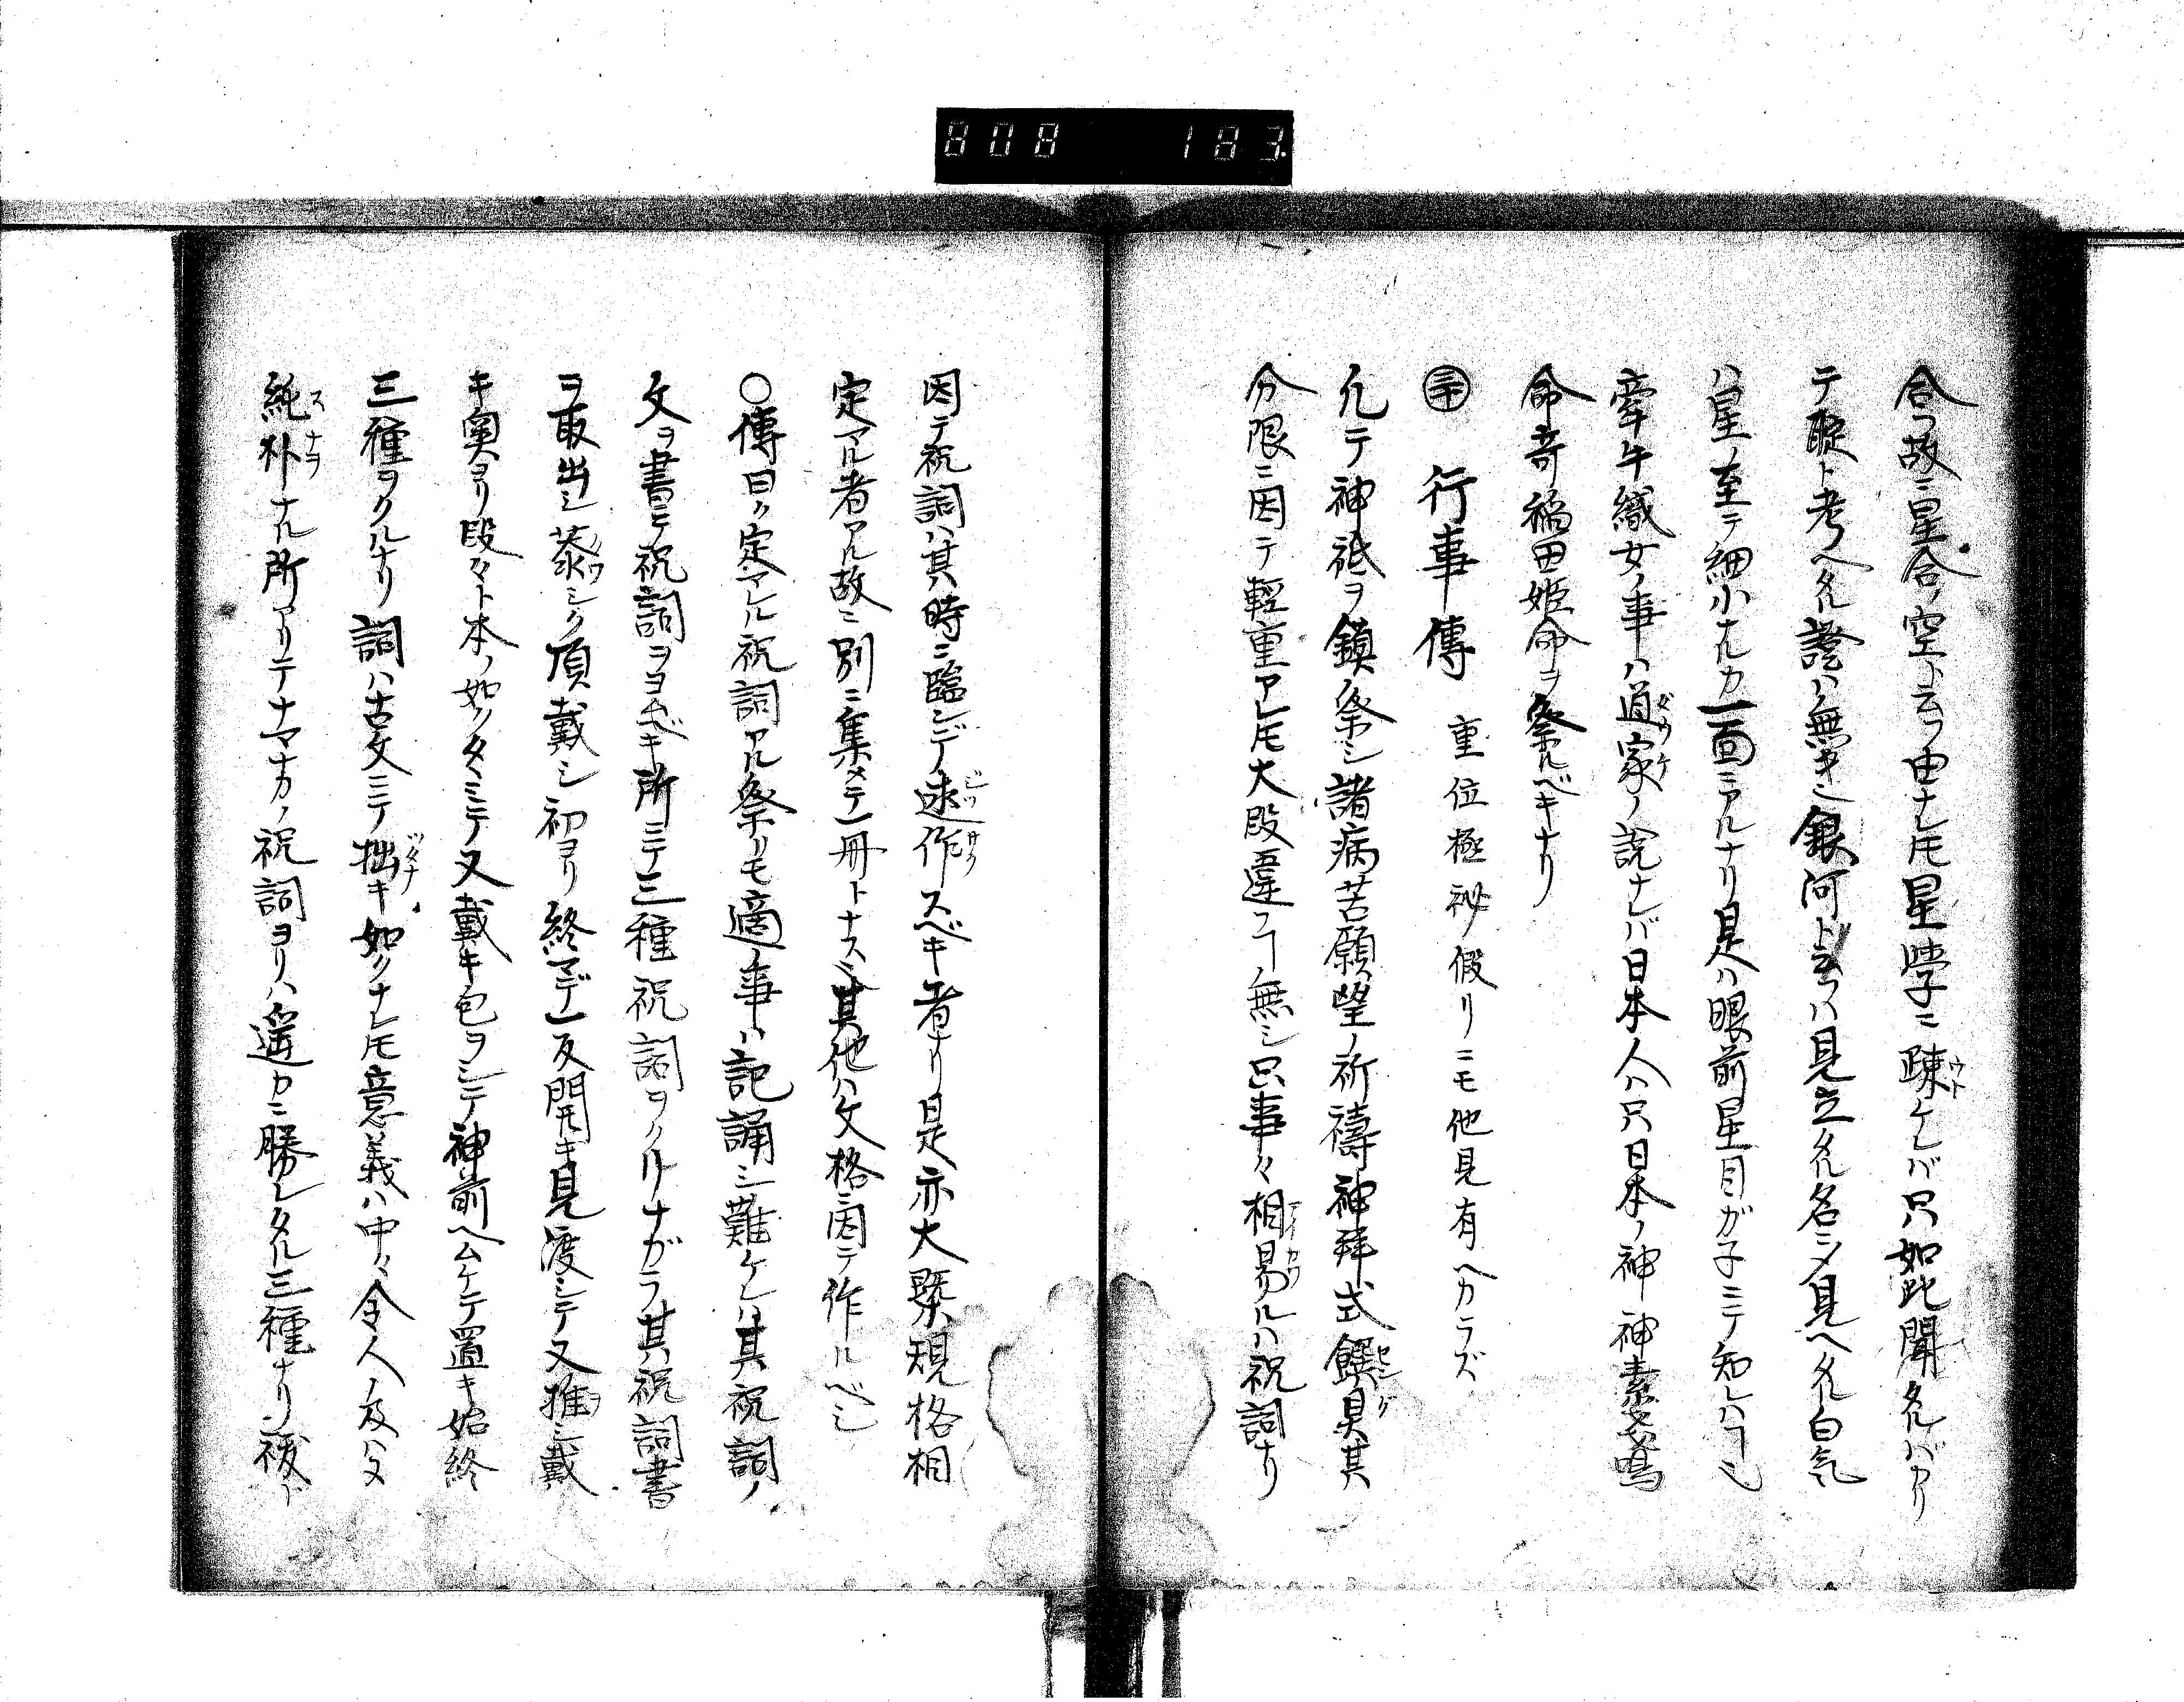 808 183
合フ故ニ星合ノ空ト云フ由ナレ𪜈星學ニ疎ケレバ只如此聞タルバカリ
テ聢ト考ヘタル證ハ無キ也銀河ト云フハ見立タル名ニ〆見ヘタル白気
ハ星ノ至テ細小ナルカ一面ニアルナリ是ハ眼前星目ガ子ニテ知レルヿ也
牽牛織女ノ事ハ道家ノ説ナレバ日本人ハ只日本ノ神神素戔嗚
命奇稲田姫命ヲ祭ルベキナリ
㊉行事傳 重位極秘ノ假リニモ他見有ヘカラズ
凡テ神祇ヲ鎮祭シ諸病苦願望ノ祈禱神拜式饌具其
分限ニ因テ軽重アレ𪜈大段違フヿ無シ只事々相易ルハ祝詞ナリ
因テ祝詞ハ其時ニ臨ンデ述作スベキ者ナリ是亦大槩規格相
定マル者アル故ニ別ニ集メテ一冊トナス也其他ハ文格ニ因テ作ルベシ
○傳曰ク定マレル祝詞アル祭リモ適事ハ記誦シ難ケレハ其祝詞ノ
文ヲ書テ祝詞ヲヨムベキ所ニテ三種祝詞ヲクリナガラ其祝詞書
ヲ取出シ恭シク頂戴シ初ヨリ終マデ一反開キ見渡シテ又推シ戴
キ奥ヨリ段々ト本ノ如クタミテ又戴キ包ヲシテ神前ヘムケテ置キ始終
三種ヲクルナリ詞ハ古文ニテ拙キ如クナレ𪜈意義ハ中々令人ノ及ハヌ
純朴ナル所アリテナマナカノ祝詞ヨリハ遥カニ勝レタル三種ナリ祓ト